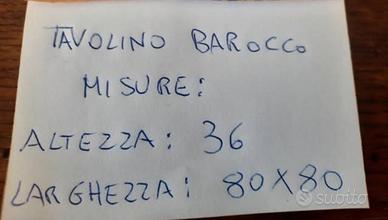 TAVOLINO BAROCCO
MISURE:
ALTEZZA: 36
LARGHEZZA: 80X80
subito